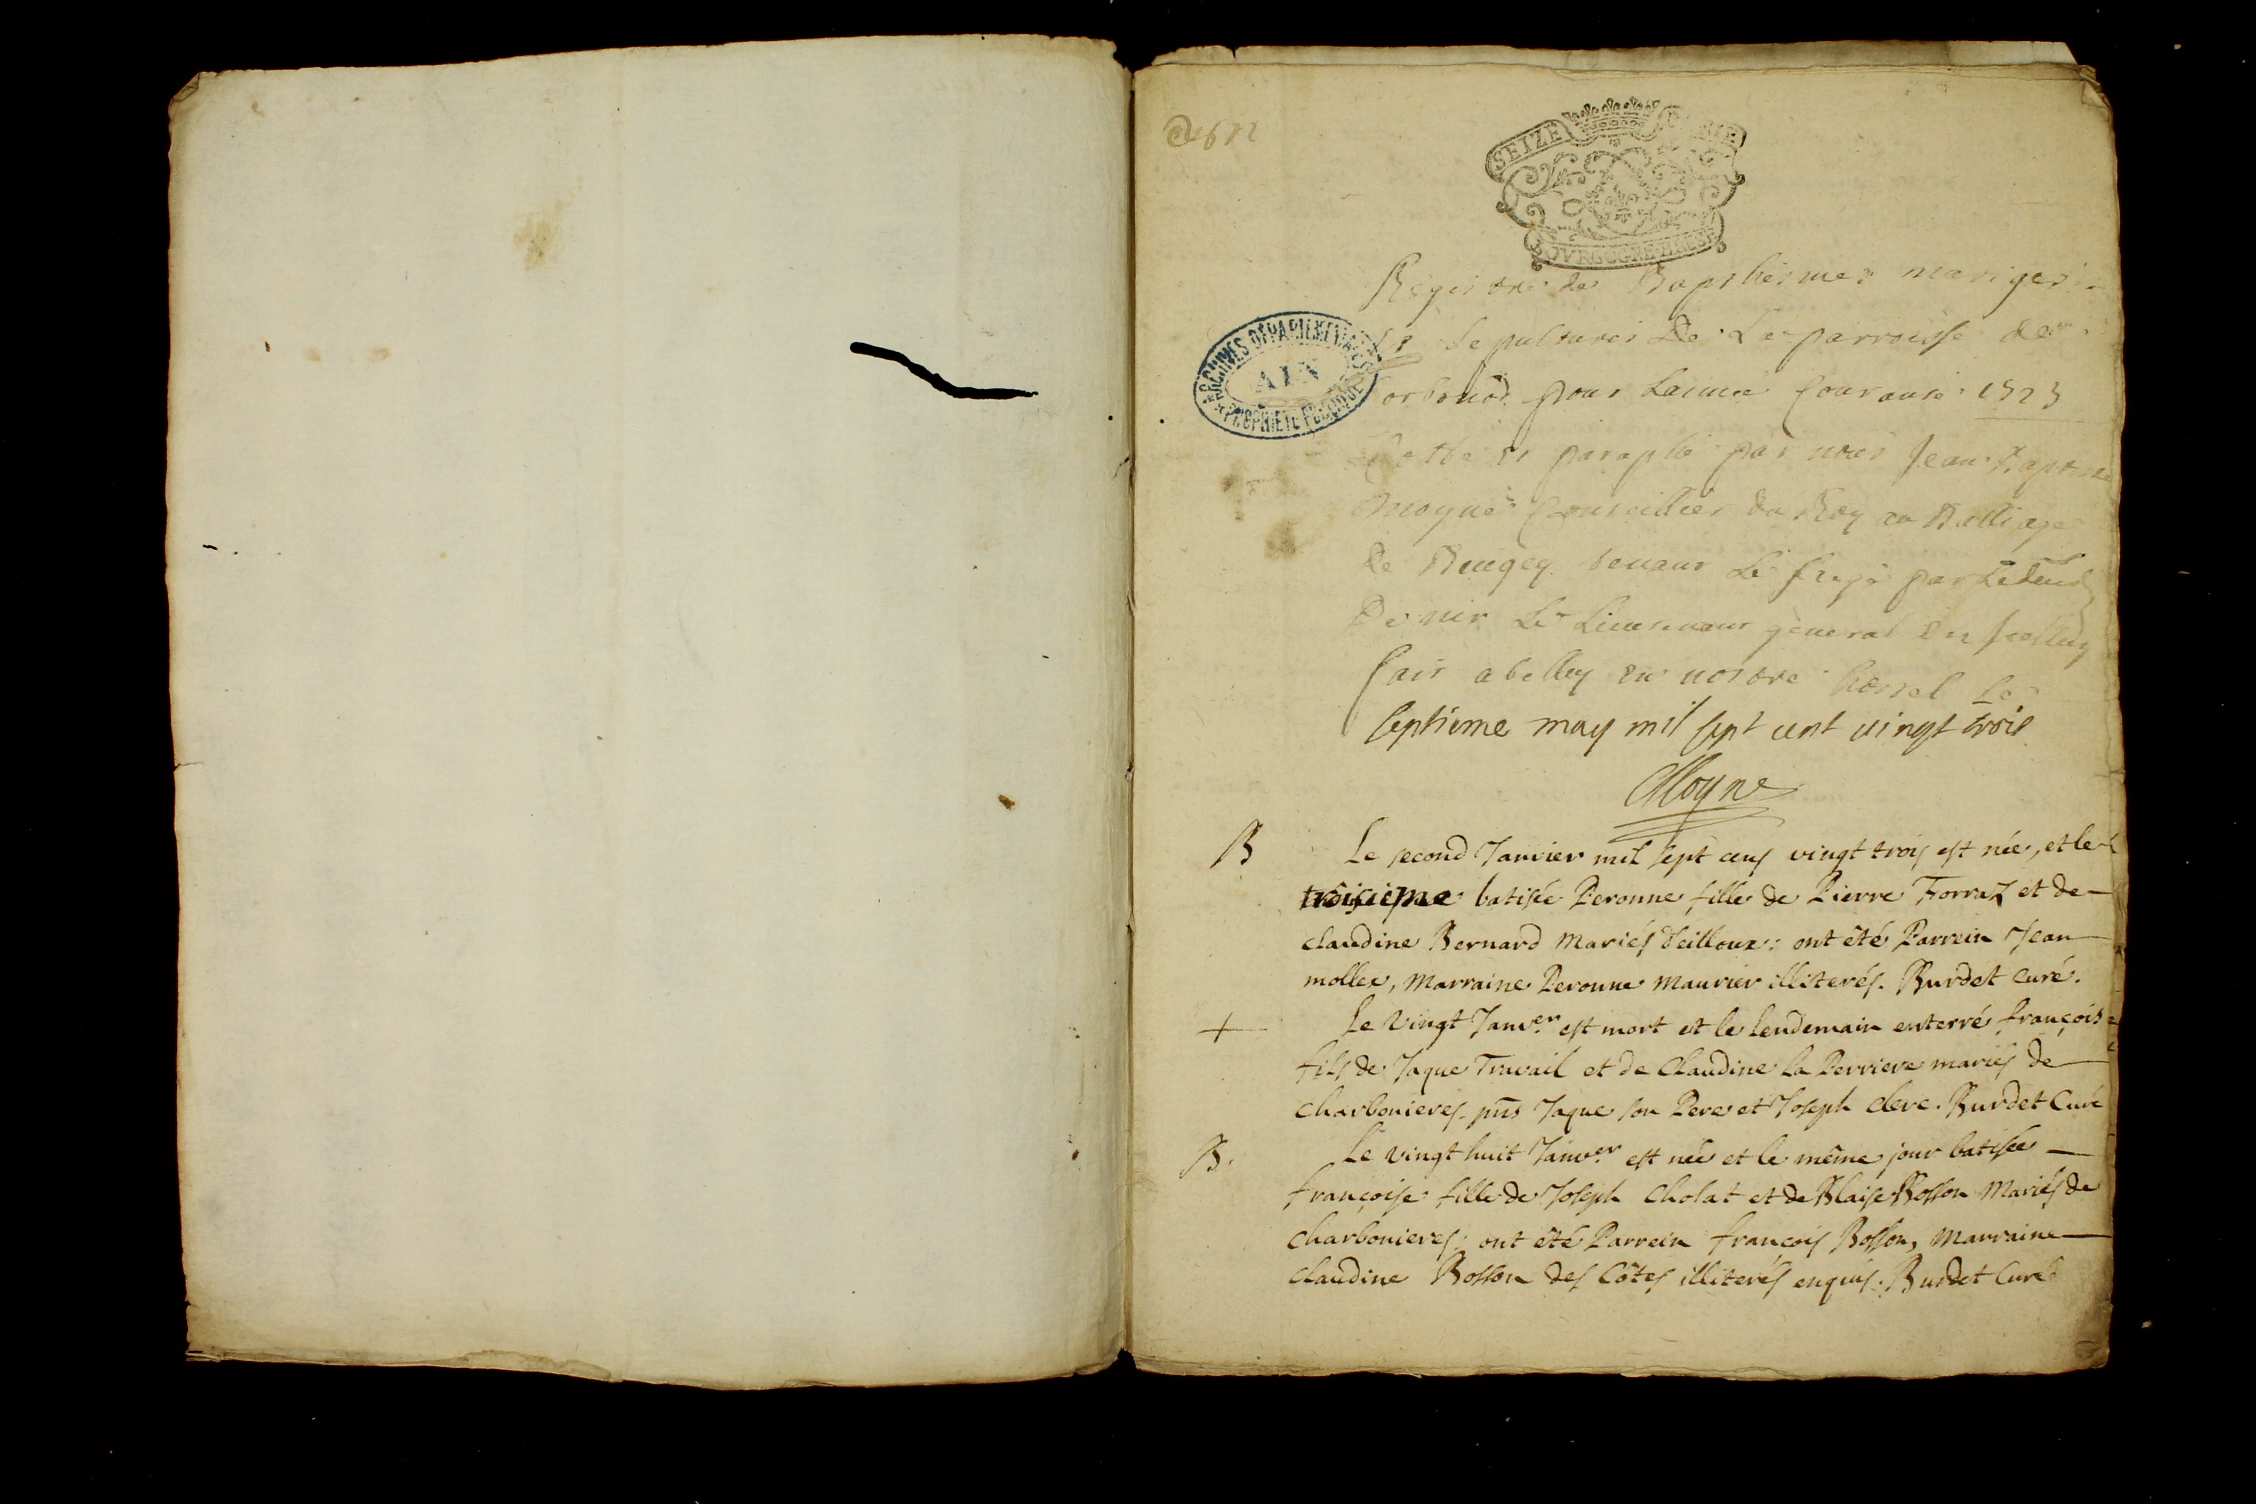 SEIZE
BOVRGOGNE BRESSE
ARCHIVES DEPARTEMENTALES
AIN
PROPRIETE PUBLIQUE
Registre de Bapthesmes mariges
et sepultures de la parroisse de
Corbonod pour lannee Courante 1723
Cotté et paraphé par nous Jean Baptiste
Moyne Conseillier du Roy au Balliage
de Beugey tenant le siege par
De mr le Lieutenant général en
fait a belley en nostre hostel le
septieme may mil sept cent vingt trois
Moyne
B Le second Janvier mil sept cens vingt trois est née, et le
troisieme batisée Peronne fille de Pierre Forraz et de
claudine Bernard Mariés d'eilloux: ont êté Parrein Jean
mollex, Marraine Peronne Maurier illiterés. Burdet Curé.
+ Le Vingt Janver est mort et le lendemain enterré françois
fils de Jaque Travail et de Claudine La Perriere mariés de
Charbonieres. pns Jaque son Pere et Joseph clerc. Burdet Curé
B. Le vingt huit Janver est née et le même jour batisée
françoise fille de Joseph Cholat et de Blaise Bosson Mariés de
Charbonieres: ont êté Parrein françois Bosson, Marraine
Claudine Bosson des Côtes illiterés enquis. Burdet Curé